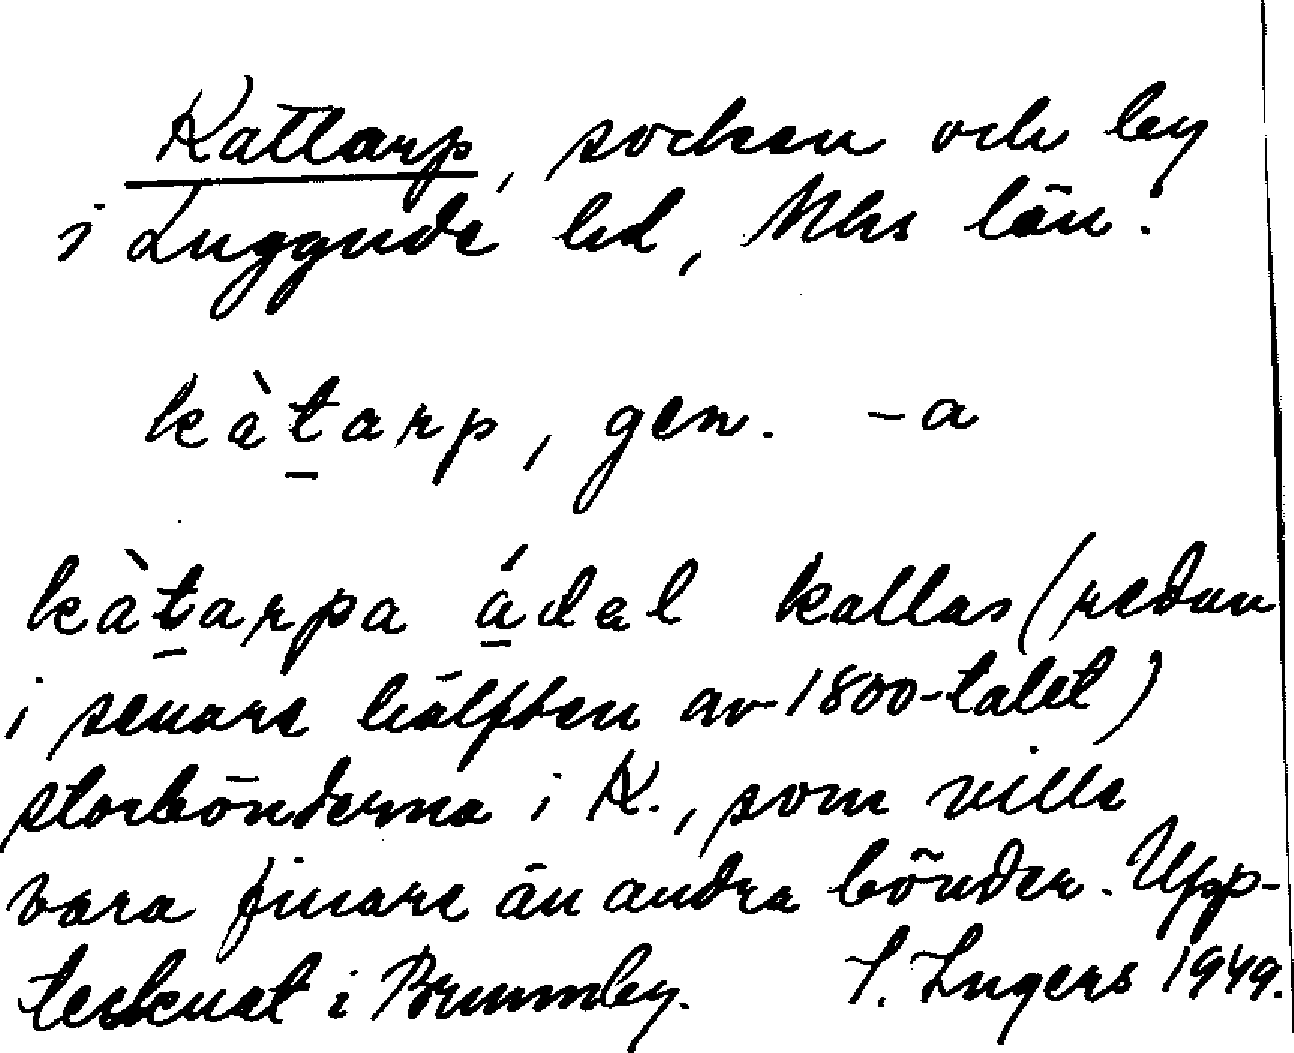 Kattarp, socken och by
i Luggude hd, Mhs län.
kàt̲arp, gen. -a
kàt̲arpa á̲dəl kallas (redan
i senare hälften av 1800-talet)
storbönderna i K., som ville
vara finare än andra bönder. Upp-
tecknat i Brunnby. I. Ingers 1949.